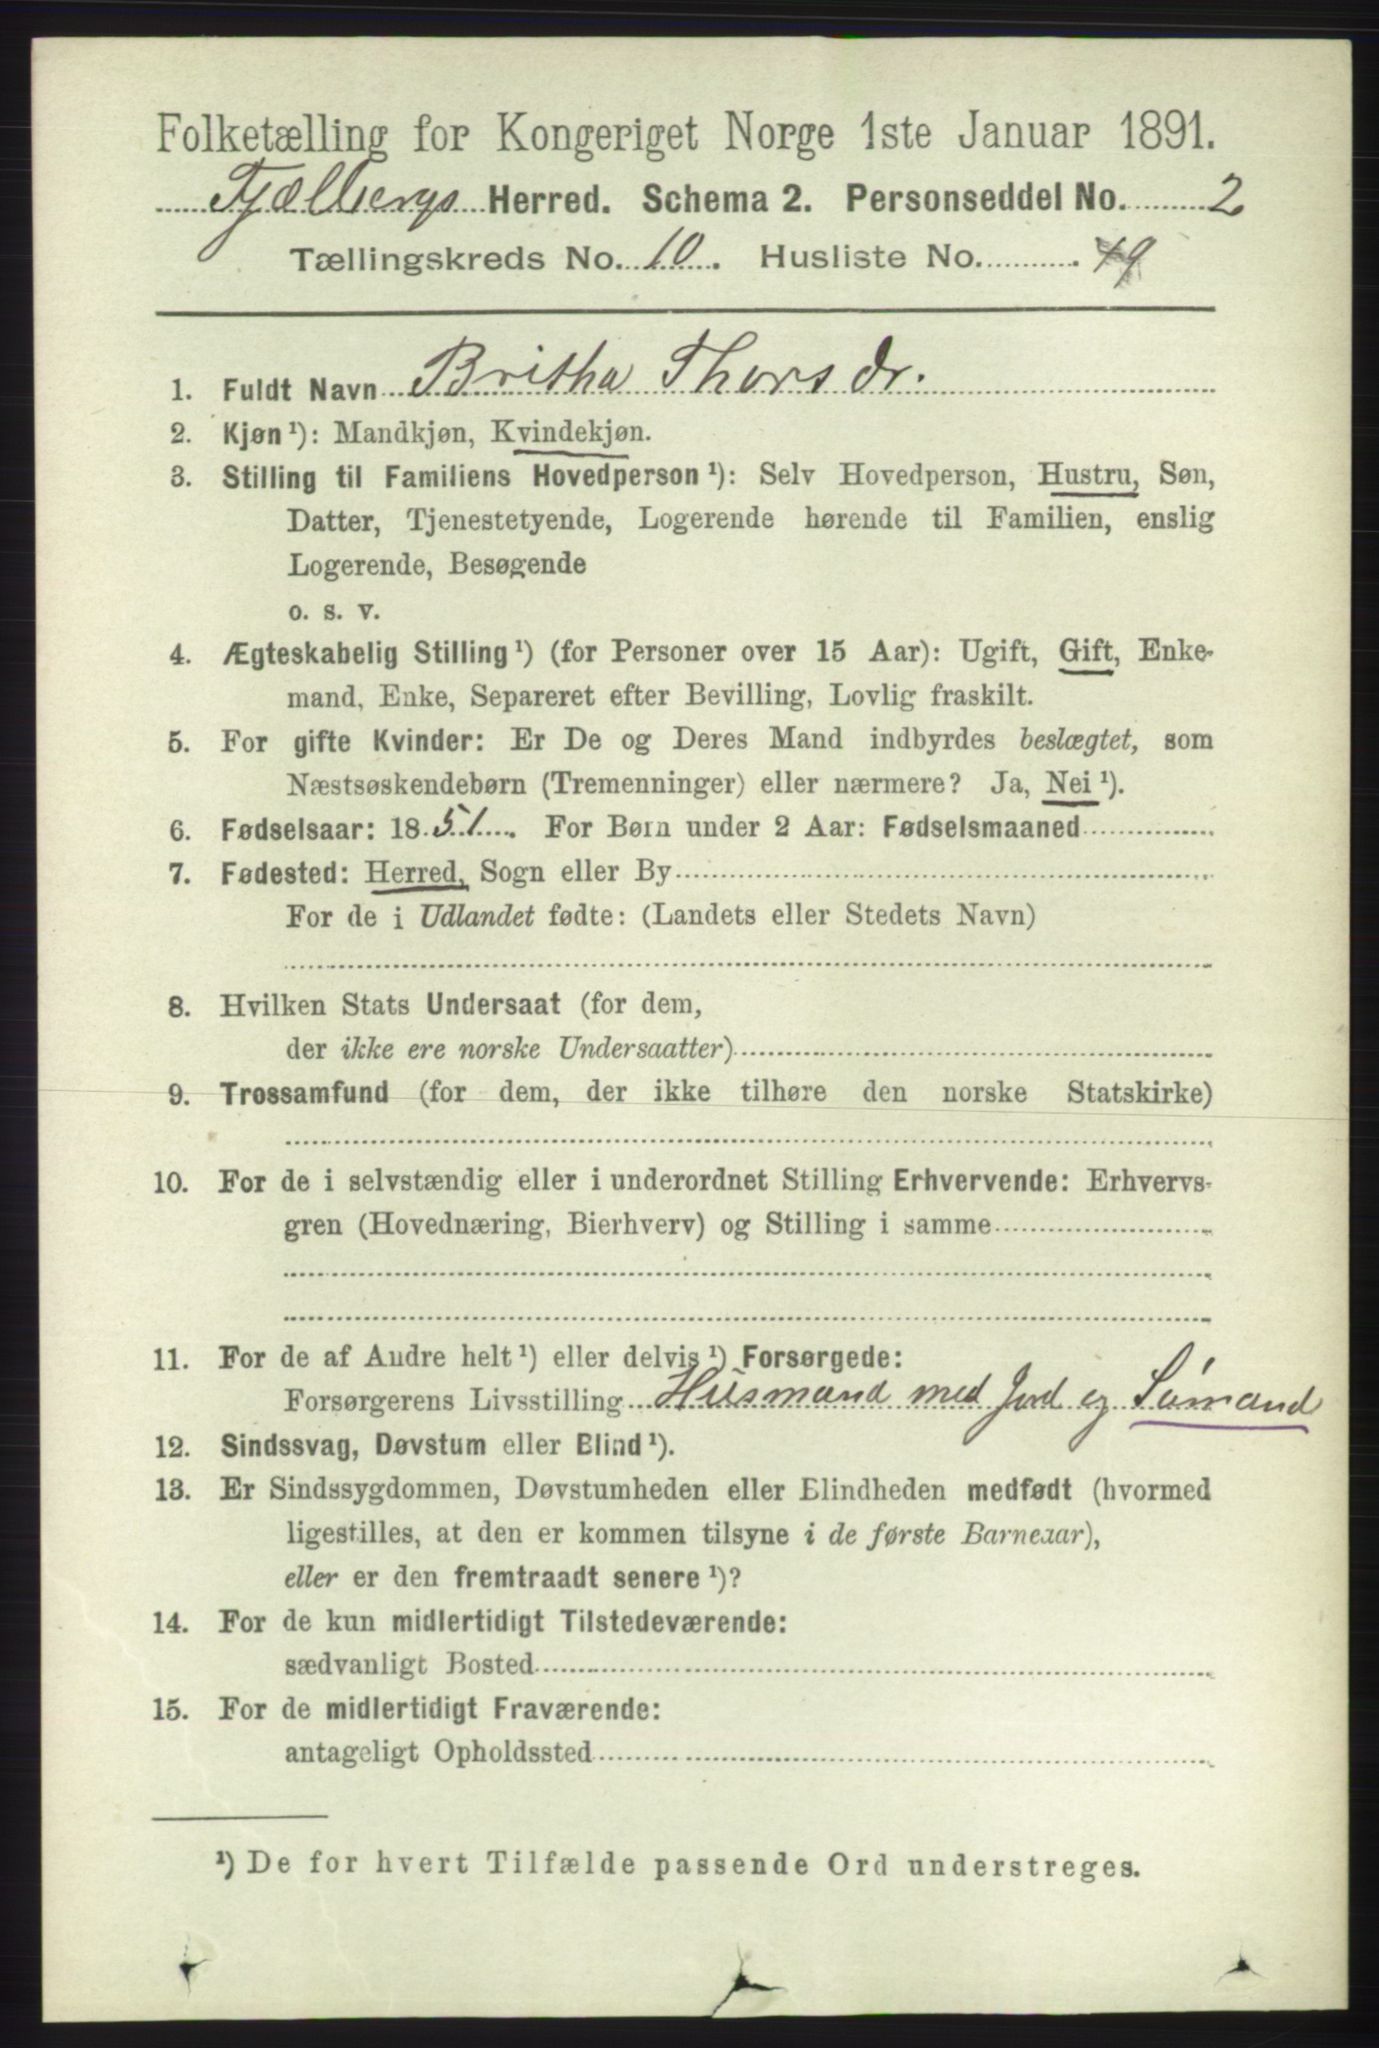 Folketælling for Kongeriget Norge 1ste Januar 1891.
Fjælbergs Herred. Schema 2. Personseddel No. 2
Tællingskreds No. 10. Husliste No. 49
1. Fuldt Navn Britha Thorsdr.
2. Kjøn ¹): Mandkjøn, Kvindekjøn.
3. Stilling til Familiens Hovedperson ¹): Selv Hovedperson, Hustru, Søn,
Datter, Tjenestetyende, Logerende hørende til Familien, enslig
Logerende, Besøgende
o. s. v.
4. Ægteskabelig Stilling ¹) (for Personer over 15 Aar): Ugift, Gift, Enke-
mand, Enke, Separeret efter Bevilling, Lovlig fraskilt.
5. For gifte Kvinder: Er De og Deres Mand indbyrdes beslægtet, som
Næstsøskendebørn (Tremenninger) eller nærmere? Ja, Nei ¹).
6. Fødselsaar: 1851. For Børn under 2 Aar: Fødselsmaaned
7. Fødested: Herred, Sogn eller By
For de i Udlandet fødte: (Landets eller Stedets Navn)
8. Hvilken Stats Undersaat (for dem,
der ikke ere norske Undersaatter)
9. Trossamfund (for dem, der ikke tilhøre den norske Statskirke)
10. For de i selvstændig eller i underordnet Stilling Erhvervende: Erhvervs-
gren (Hovednæring, Bierhverv) og Stilling i samme
11. For de af Andre helt ¹) eller delvis ¹) Forsørgede:
Forsørgerens Livsstilling Husmand med Jord og Sømand
12. Sindssvag, Døvstum eller Blind ¹).
13. Er Sindssygdommen, Døvstumheden eller Blindheden medfødt (hvormed
ligestilles, at den er kommen tilsyne i de første Barneaar),
eller er den fremtraadt senere ¹)?
14. For de kun midlertidigt Tilstedeværende:
sædvanligt Bosted
15. For de midlertidigt Fraværende:
antageligt Opholdssted
¹) De for hvert Tilfælde passende Ord understreges.